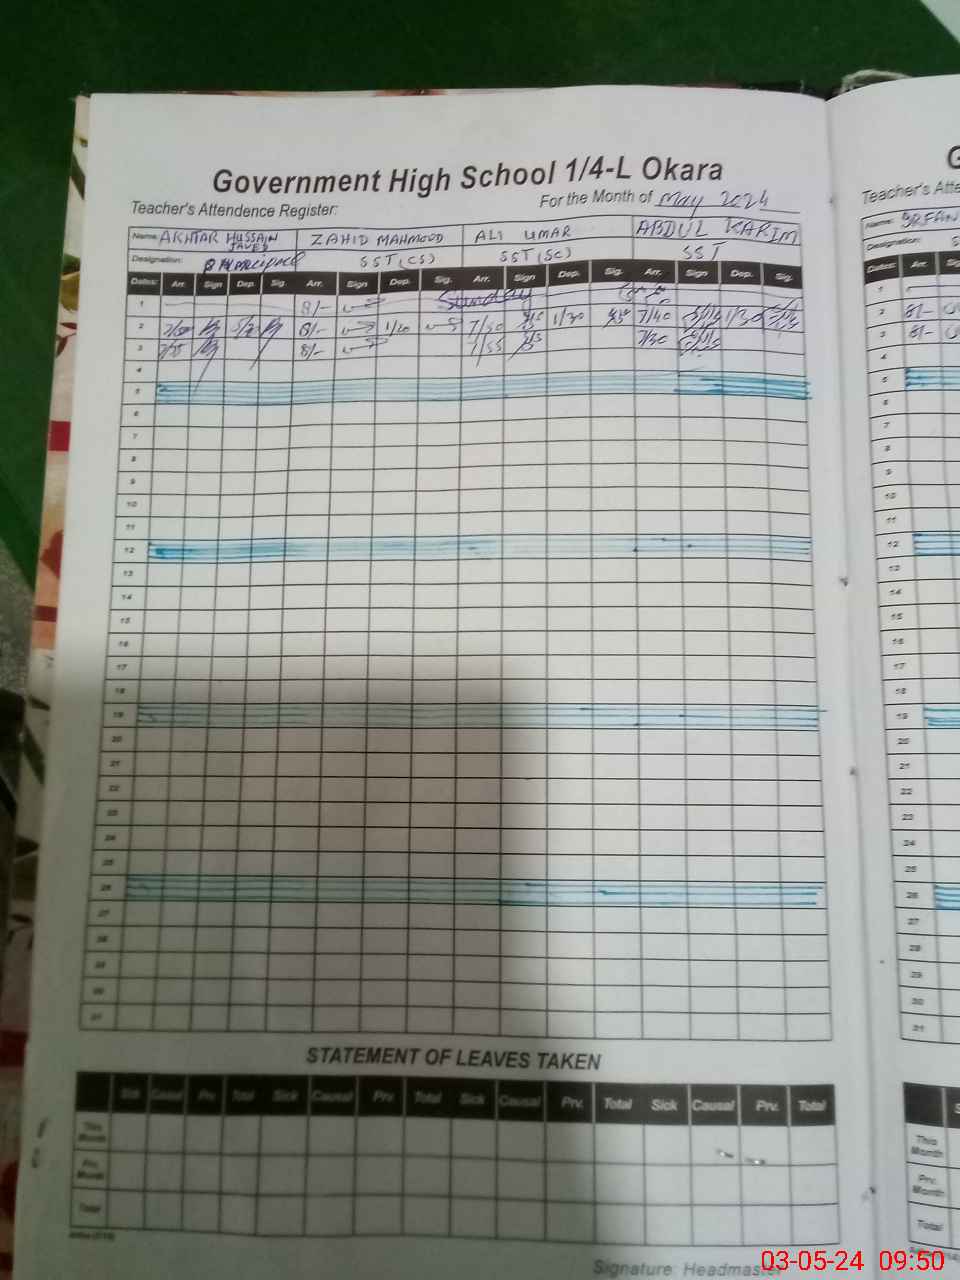 Government High School 1/4-L Okara
Teacher's Attendence Register: For the Month of May 2024
Name: AKHTAR HUSSAIN JAVED ZAHID MAHMOOD ALI UMAR ABDUL KARIM
Designation: Principal SST(CS) SST(SC) SST
Dates: Arr. Sign Dep. Sig. Arr. Sign Dep. Sig. Arr. Sign Dep. Sig. Arr. Sign Dep. Sig.
1 8/-
2 8/- 1/30 7/50 1/30 7/40 1/30
3 8/- 7/55 7/30
4
5
6
7
8
9
10
11
12
13
14
15
16
17
18
19
20
21
22
23
24
25
26
27
28
29
30
31
STATEMENT OF LEAVES TAKEN
Sick Causal Prv. Total Sick Causal Prv. Total Sick Causal Prv. Total Sick Causal Prv. Total
This Month
Prv. Month
Total
Signature: Headmaster
Teacher's Atte
Name: IRFAN
Designation: S
Dates: Arr. Sig
1
2 8/-
3 8/-
4
5
6
7
8
9
10
11
12
13
14
15
16
17
18
19
20
21
22
23
24
25
26
27
28
29
30
31
This Month
Prv. Month
Total
03-05-24 09:50